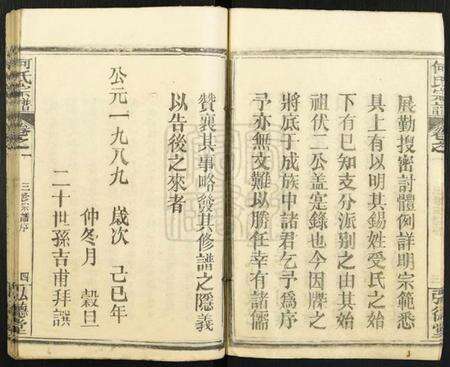 何氏宗譜
卷之一
展勤搜密討體例詳明宗範悉
具上有以明其錫姓受民之始
下有已知支分派别之由其始
祖伏二公盖寔錄也今因牒之
將底于成族中諸君乞予爲序
予亦無文難以勝任幸有諸儒
弘德堂
贊襄其事略發其修譜之隱義
以告後之來者
公元一九八九 歲次 己巳年
仲冬月 穀旦
二十世孫吉甫拜譔
何氏宗譜
卷之一
三修宗譜序
四
弘德堂